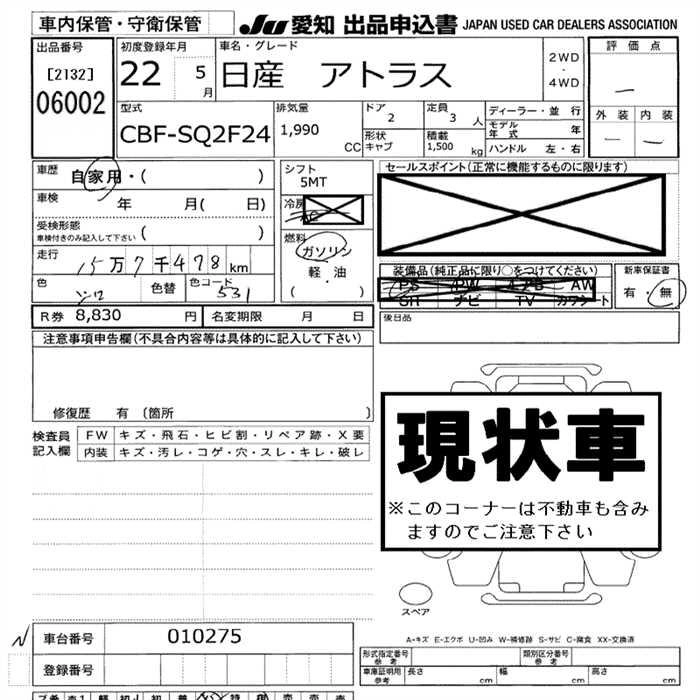 車内保管・守衛保管 JU 愛知 出品申込書 JAPAN USED CAR DEALERS ASSOCIATION
出品番号 初度登録年月 車名・グレード 評価点
[2132] 22 5月 日産 アトラス 2WD・4WD 一
06002
型式 排気量 ドア 定員 ディーラー・並行 外装 内装
CBF-SQ2F24 1,990 CC 2 3 人 モデル年式 年 一 一
形状 キャブ 積載 1,500 kg ハンドル 左・右
車歴 自家用・( ) シフト セールスポイント(正常に機能するものに限ります)
5MT
車検 年 月( 日) 冷房 AC
受検形態 ( )
車検付きのみ記入して下さい
燃料 ガソリン
走行 15万7千478km 軽・油 装備品(純正品に限り○をつけてください) 新車保証書
PS PW エアB AW 有・無
色 シロ 色替 色コード 531 ( ) SR ナビ TV カワシート
R券 8,830 円 名変期限 月 日 後日品
注意事項申告欄(不具合内容等は具体的に記入して下さい)
修復歴 有 (箇所 )
現状車
検査員 FW キズ・飛石・ヒビ割・リペア跡・X要
記入欄 内装 キズ・汚レ・コゲ・穴・スレ・キレ・破レ
※このコーナーは不動車も含み
ますのでご注意下さい
スペア
A-キズ E-エクボ U-凹み W-補修跡 S-サビ C-腐食 XX-交換済
車台番号 010275
形式指定番号 参考 類別区分番号 参考
登録番号 車庫証明用 参考 長さ cm 幅 cm 高さ cm